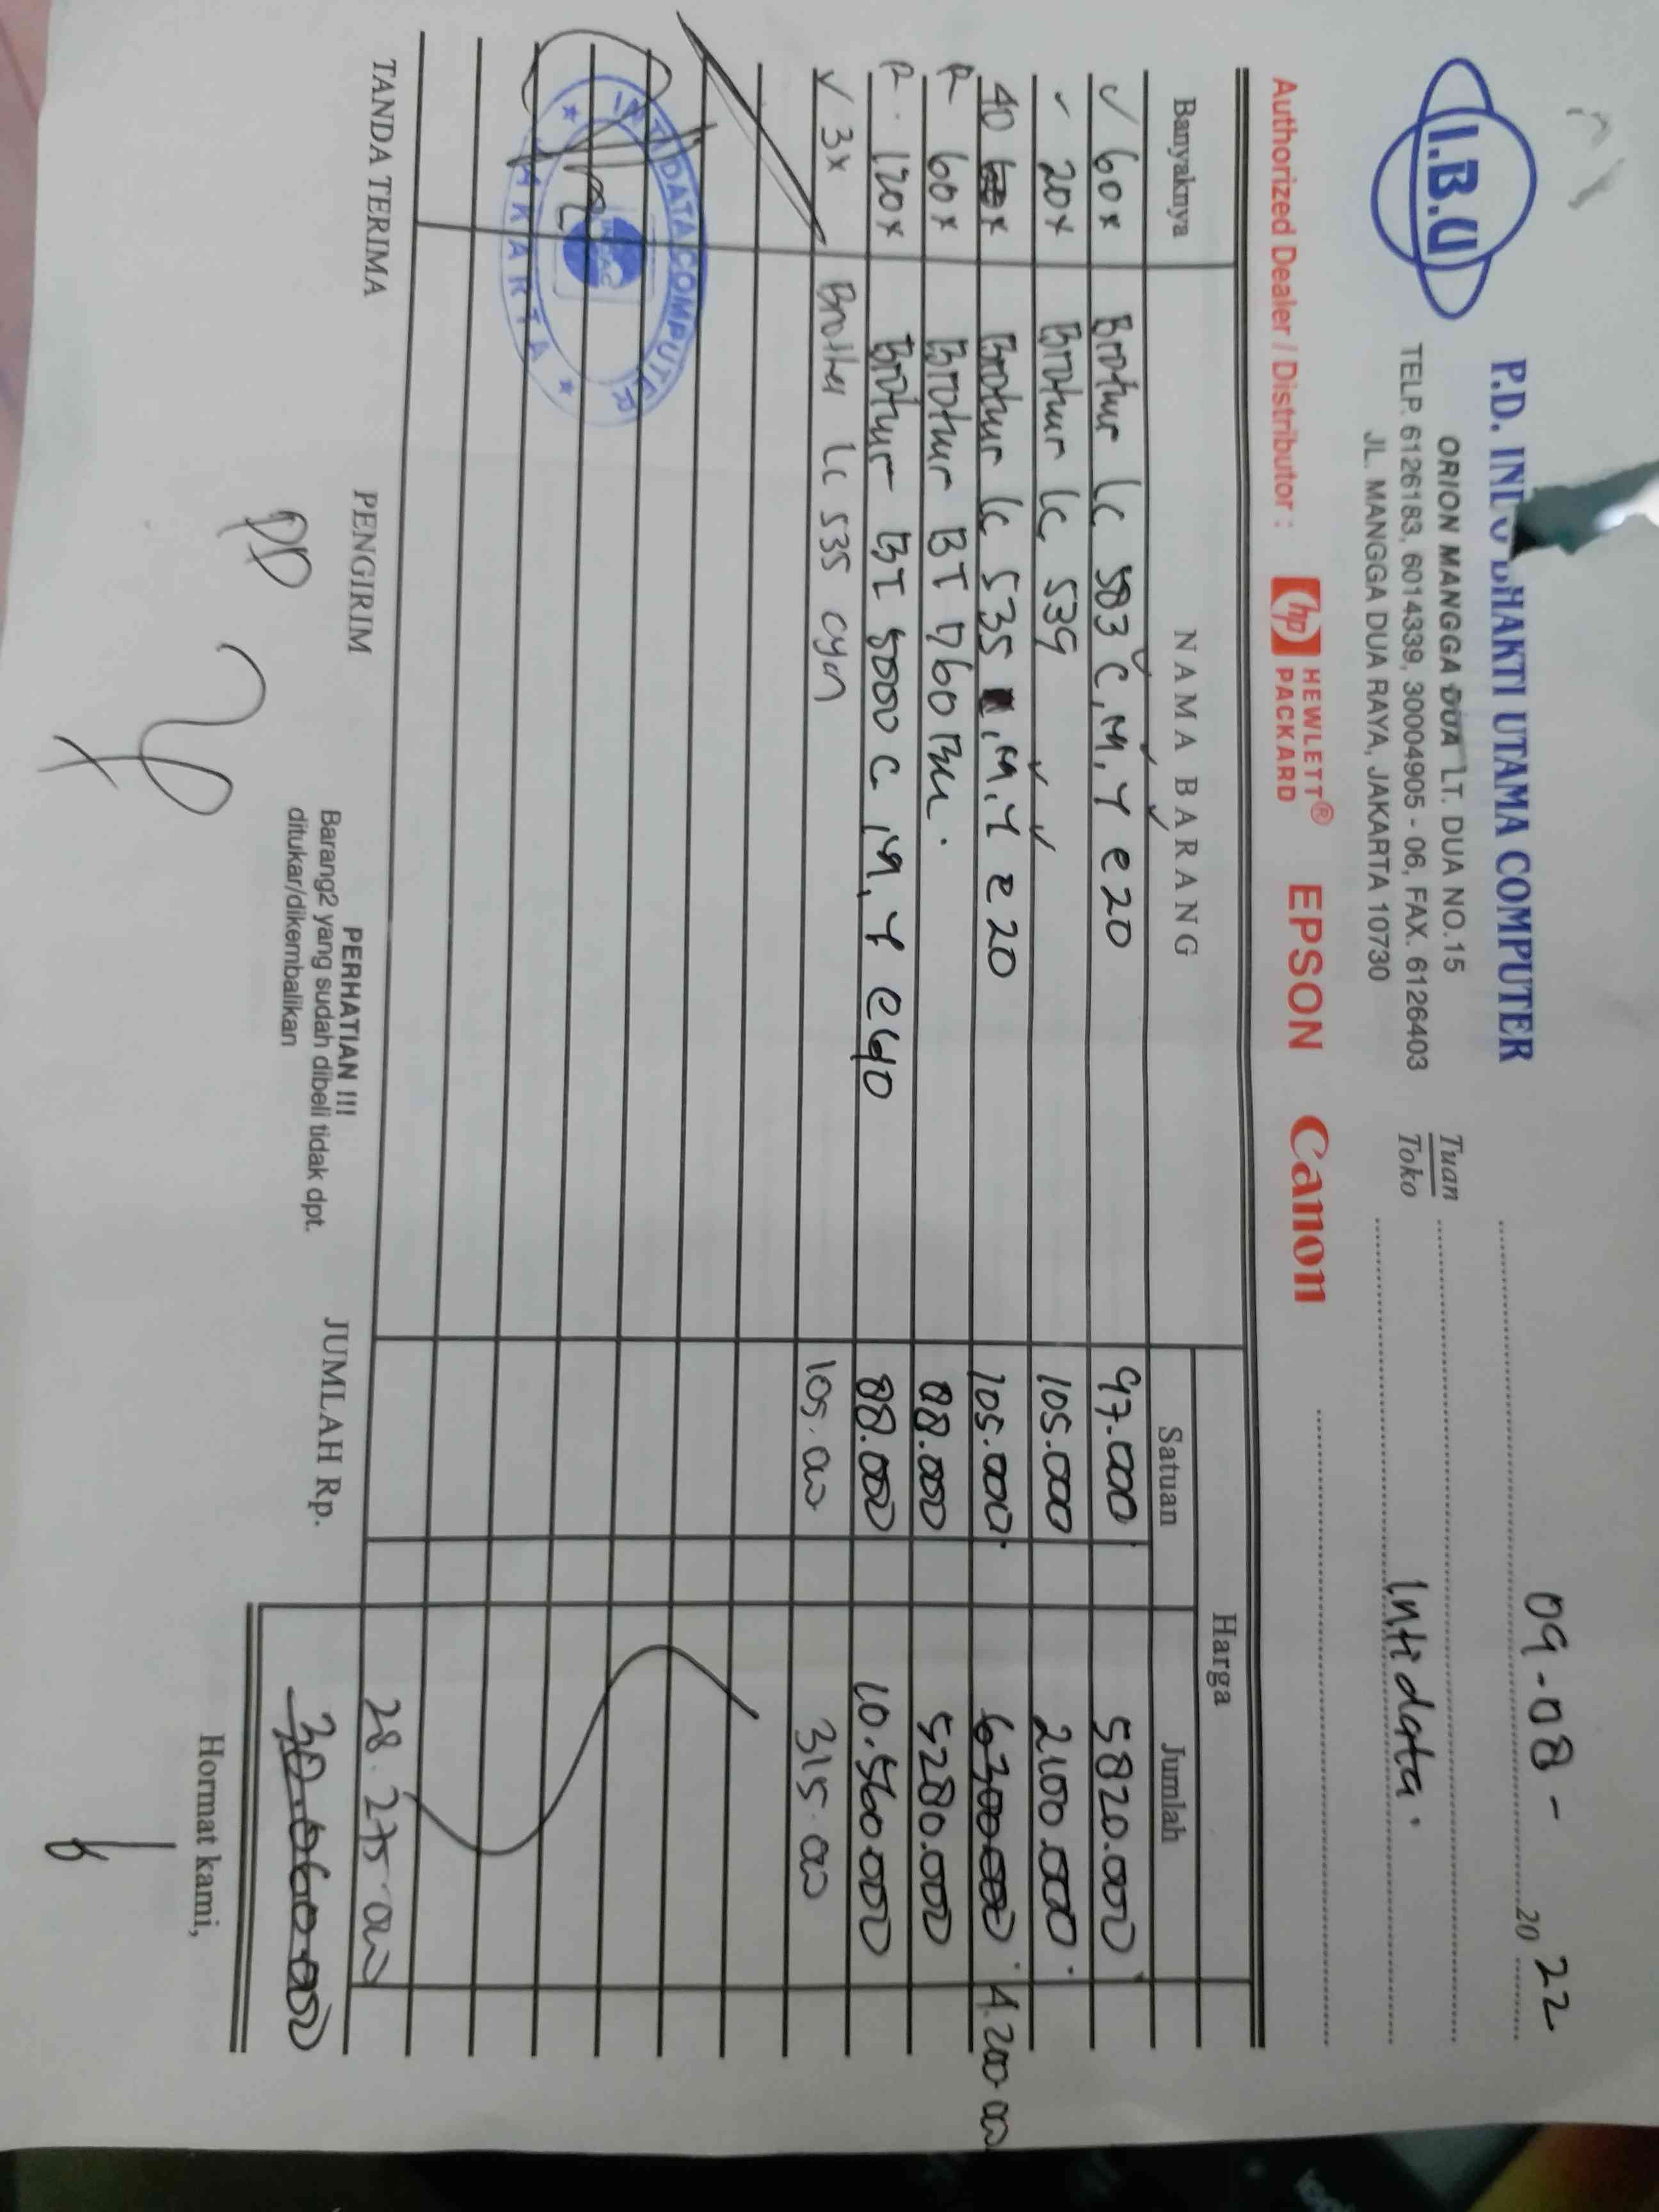 I.B.U
P.D. INDO BHAKTI UTAMA COMPUTER
ORION MANGGA DUA LT. DUA NO.15
TELP. 6126183, 6014339, 30004905 - 06, FAX. 6126403
JL. MANGGA DUA RAYA, JAKARTA 10730
09-08- 20 22
Tuan
Toko
Intidata.
Authorized Dealer / Distributor : hp HEWLETT® PACKARD EPSON Canon
Banyaknya NAMA BARANG Harga
Satuan Jumlah
✓ 60x Brother LC 583 C, M, Y @ 20 97.000 5820.000
✓ 20x Brother LC 539 105.000 2100.000
40 x Brother LC 535 , M, Y @ 20 105.000 6300.000 4.200.000
R 60x Brother BT 7760 105.000 5280.000
R. 120x Brother BT 5000 C, M, Y @40 88.000 10.560.000
✓ 3x Brother LC 535 cyan 105.000 315.000
28.275.000
TANDA TERIMA PENGIRIM JUMLAH Rp. 30.060.000
PERHATIAN !!!
Barang2 yang sudah dibeli tidak dpt.
ditukar/dikembalikan
Hormat kami,